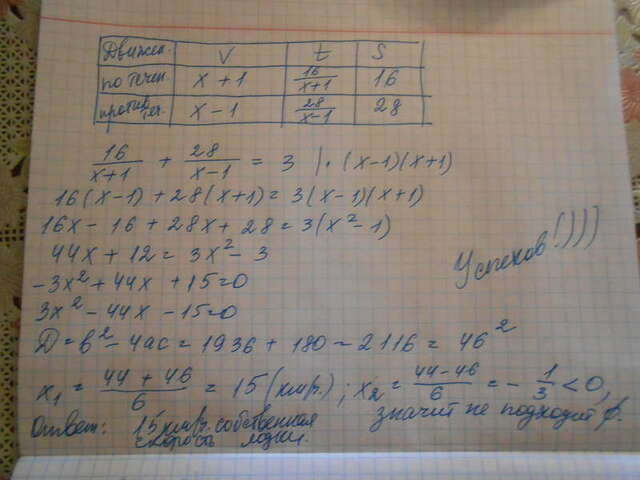 Движен. V t S
по течен. x + 1 16/(x+1) 16
против теч. x - 1 28/(x-1) 28
16/(x+1) + 28/(x-1) = 3 | · (x-1)(x+1)
16(x-1) + 28(x+1) = 3(x-1)(x+1)
16x - 16 + 28x + 28 = 3(x² - 1)
44x + 12 = 3x² - 3
-3x² + 44x + 15 = 0
3x² - 44x - 15 = 0
Д = в² - 4ac = 1936 + 180 - 2116 = 46²
x₁ = (44 + 46)/6 = 15 (км/ч.); x₂ = (44-46)/6 = - 1/3 < 0,
значит не подходит
Ответ: 15 км/ч. собственная
скорость лодки.
Успехов!)))